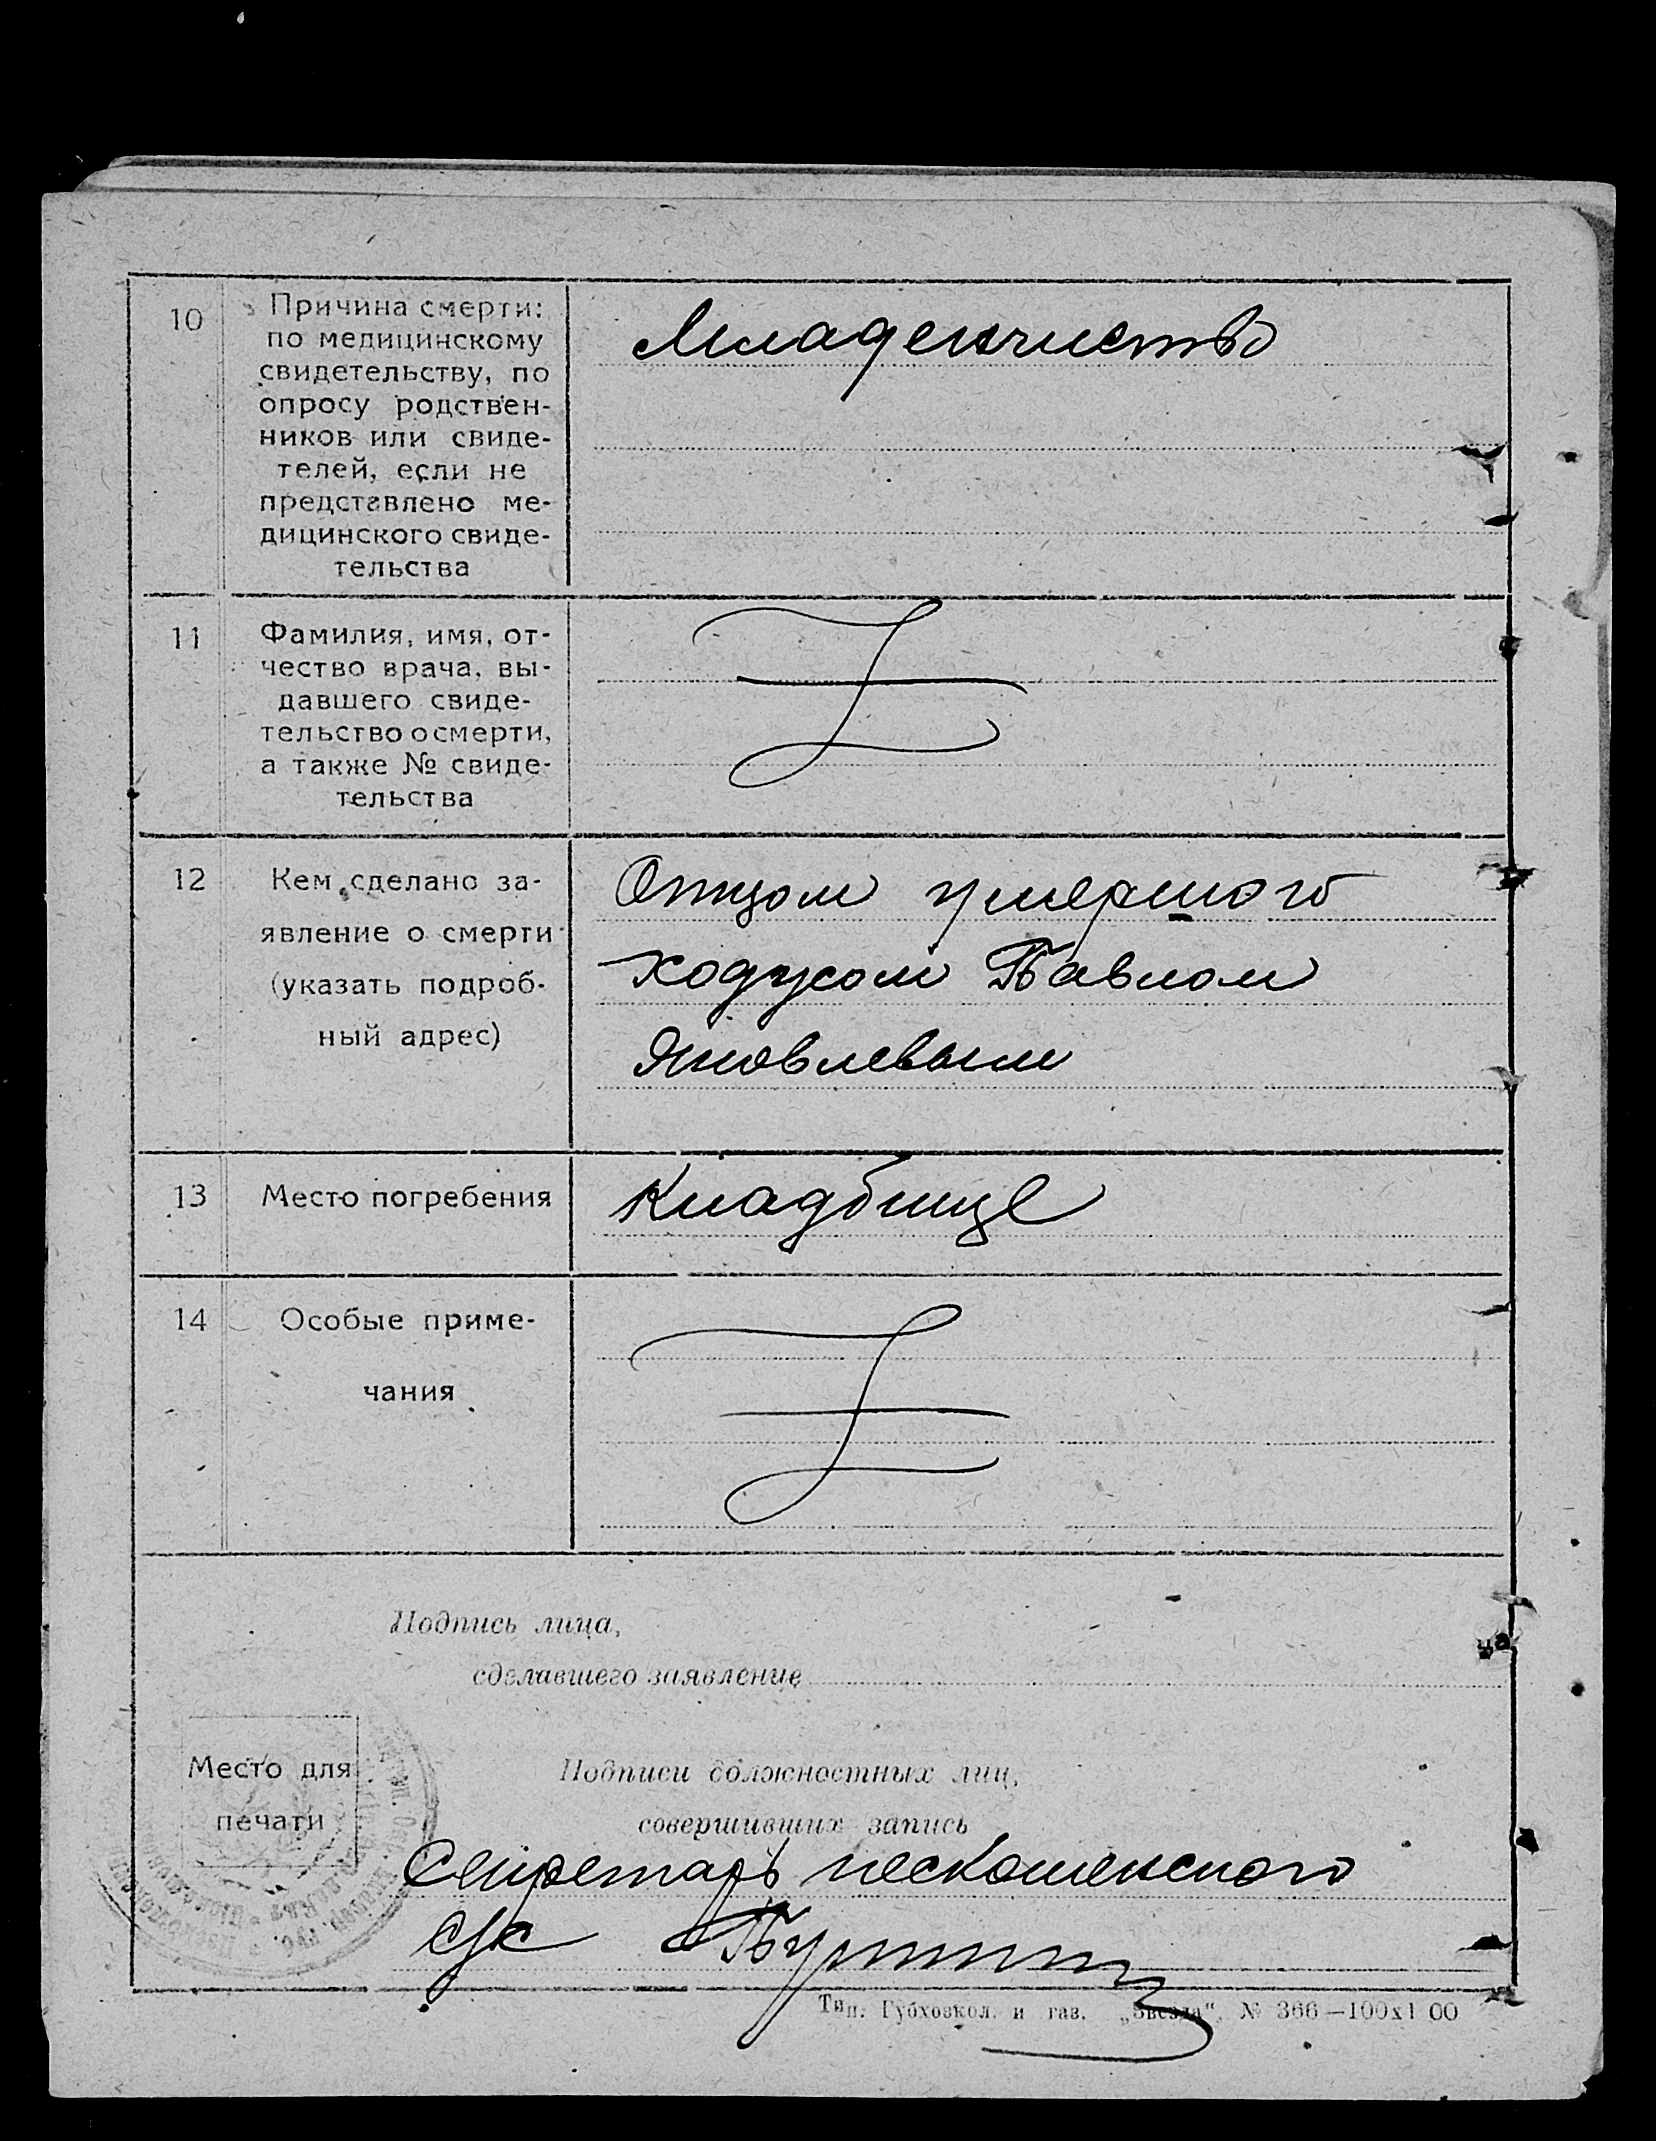 10
Причина смерти:
по медицинскому
свидетельству, по
опросу родствен-
ников или свиде-
телей, если не
представлено ме-
дицинского свиде-
тельства
Младенчиство
11
Фамилия, имя, от-
чество врача, вы-
давшего свиде-
тельство о смерти,
а также № свиде-
тельства
12
Кем сделано за-
явление о смерти
(указать подроб-
ный адрес)
Отцом умершого
Ходусом Павлом
Яковлевым
13
Место погребения
Кладбище
14
Особые приме-
чания
Подпись лица,
сделавшего заявление
Место для
печати
Подписи должностных лиц,
совершивших запись
Секретарь
с/с
Тип. Губхозкол. и газ. „Звезда“, № 366—100х1 00